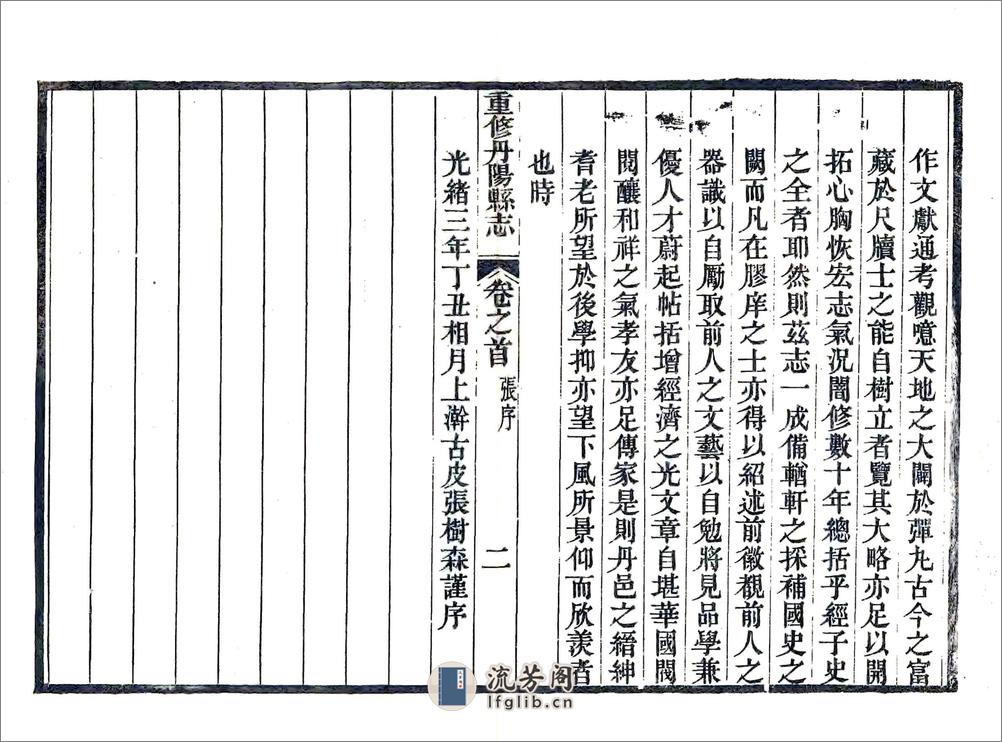 作文獻通考觀噫天地之大闢於彈丸古今之富
藏於尺牘士之能自樹立者覽其大略亦足以開
拓心胸恢宏志氣況闇修數十年總括乎經子史
之全者耶然則茲志一成備輶軒之採補國史之
闕而凡在膠庠之士亦得以紹述前徽覩前人之
器識以自勵取前人之文藝以自勉將見品學兼
優人才蔚起帖括增經濟之光文章自堪華國閥
閱釀和祥之氣孝友亦足傳家是則丹邑之縉紳
耆老所望於後學抑亦望下風所景仰而欣羨者
也時
重修丹陽縣志 卷之首 張序 二
光緒三年丁丑相月上澣古皮張樹森謹序
流芳阁
lfglib.cn